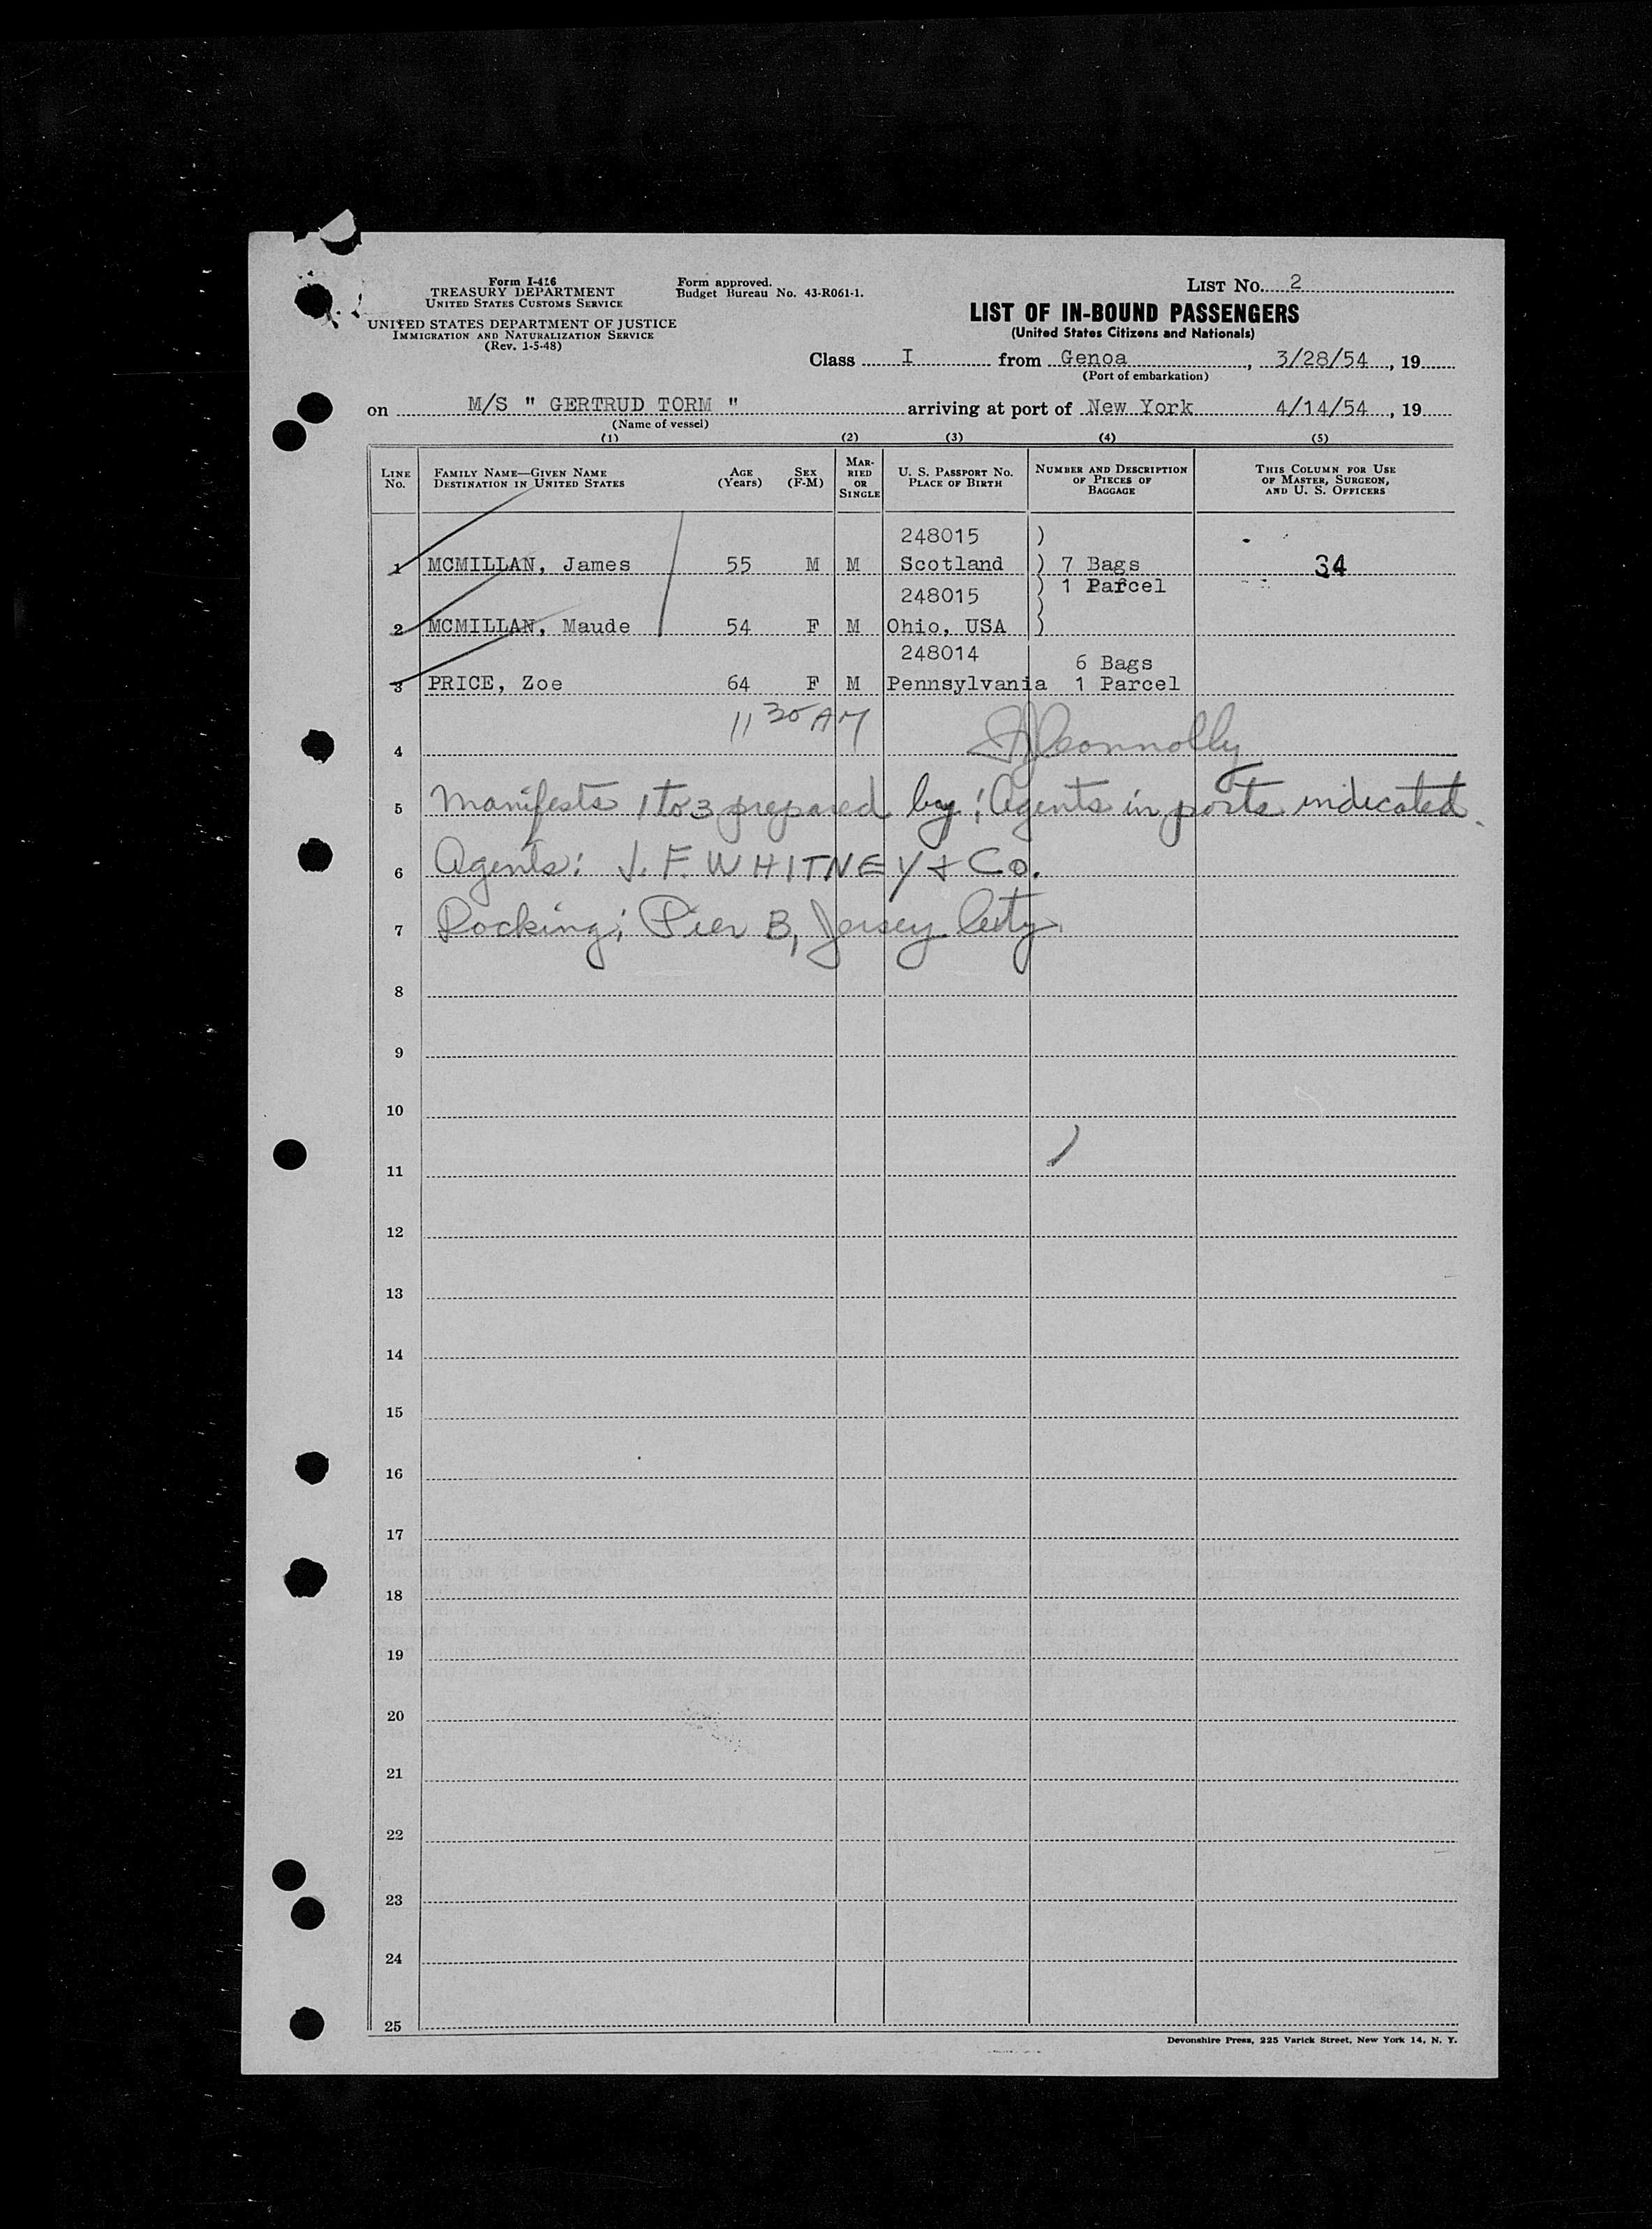 Form I-416
TREASURY DEPARTMENT
UNITED STATES CUSTOMS SERVICE
UNITED STATES DEPARTMENT OF JUSTICE
IMMIGRATION AND NATURALIZATION SERVICE
(Rev. 1-5-48)
Form approved.
Budget Bureau No. 43-R061-1.
LIST No. 2
LIST OF IN-BOUND PASSENGERS
(United States Citizens and Nationals)
Class I from Genoa, 3/28/54, 19
(Port of embarkation)
on M/S " GERTRUD TORM " arriving at port of New York 4/14/54, 19
(Name of vessel)
(1) (2) (3) (4) (5)
LINE No.
FAMILY NAME—GIVEN NAME
DESTINATION IN UNITED STATES
AGE (Years)
SEX (F-M)
MARRIED OR SINGLE
U. S. PASSPORT No.
PLACE OF BIRTH
NUMBER AND DESCRIPTION
OF PIECES OF
BAGGAGE
THIS COLUMN FOR USE
OF MASTER, SURGEON,
AND U. S. OFFICERS
248015 )
1 MCMILLAN, James 55 M M Scotland ) 7 Bags 34
248015 ) 1 Parcel
)
2 MCMILLAN, Maude 54 F M Ohio, USA )
248014 6 Bags
3 PRICE, Zoe 64 F M Pennsylvania 1 Parcel
11 30 AM
4 Connolly
5 Manifests 1 to 3 prepared by: Agents in ports indicated.
6 Agents: J. F. WHITNEY & Co.
7 Docking: Pier B, Jersey City
8
9
10
11
12
13
14
15
16
17
18
19
20
21
22
23
24
25
Devonshire Press, 225 Varick Street, New York 14, N. Y.